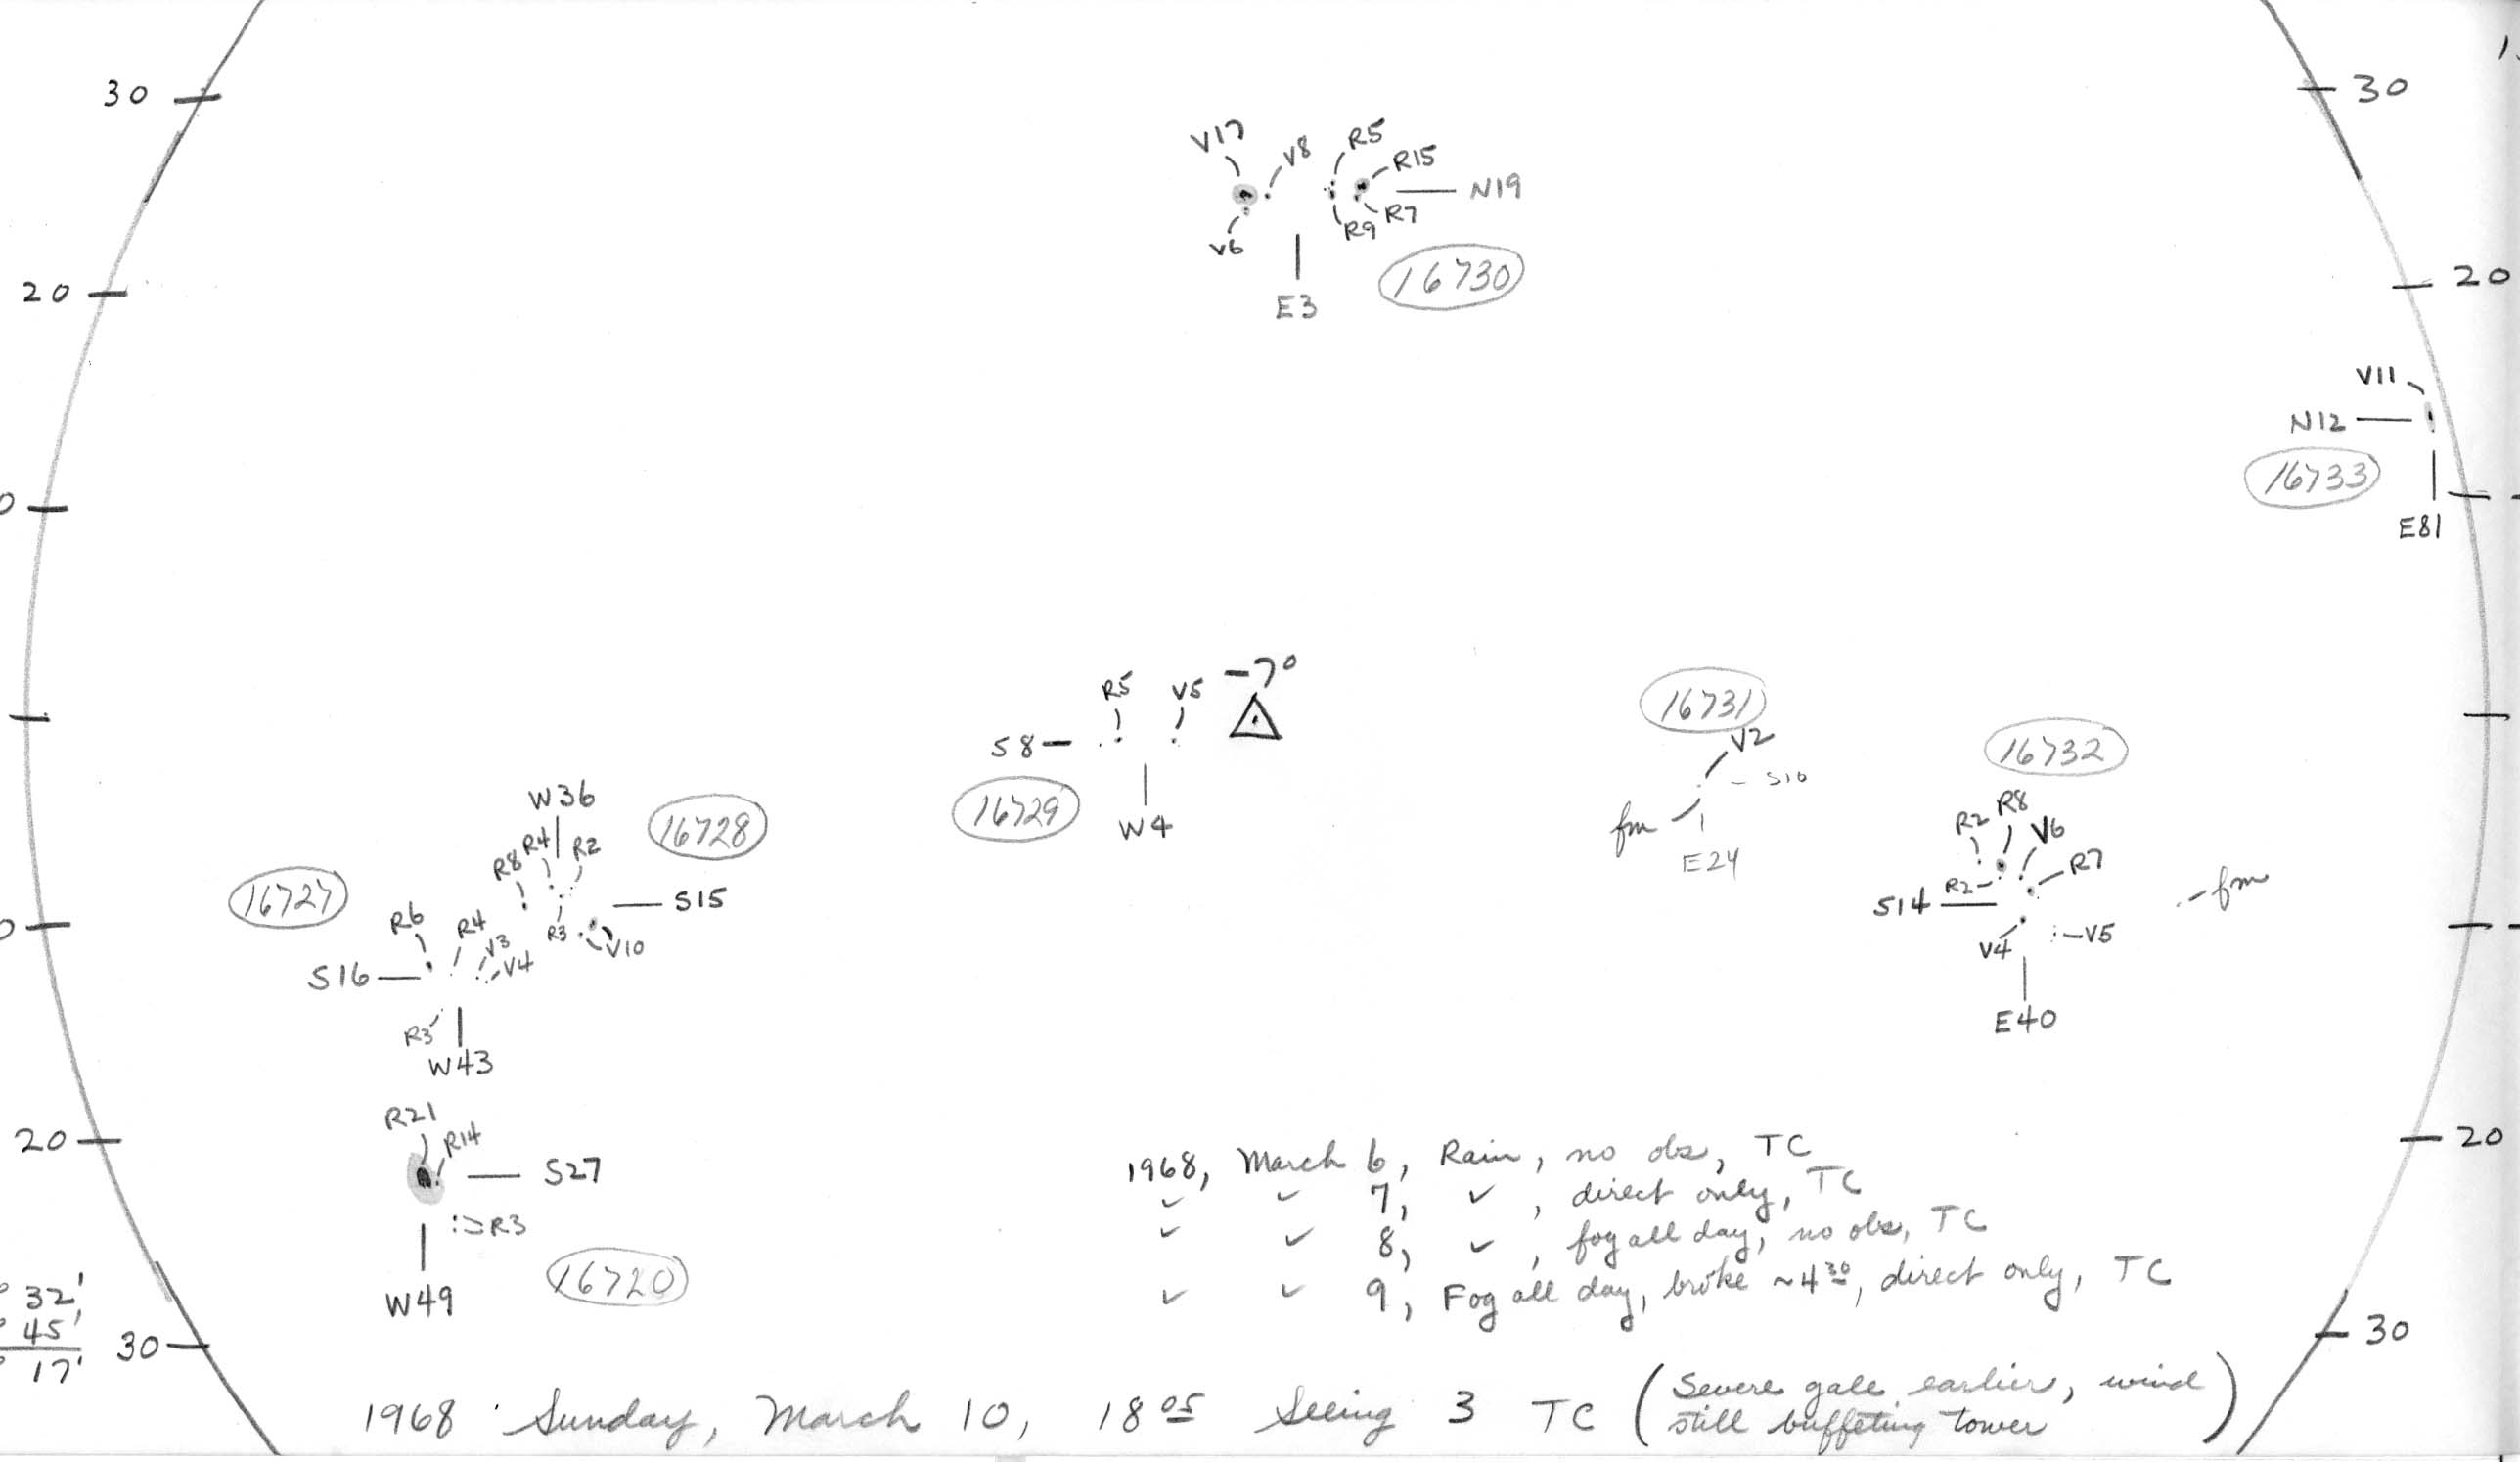 30
30
V17
V8
R5
R15
N19
V6
R9
R7
E3
16730
20
20
V11
N12
16733
E81
-7°
R5
V5
S8
16729
W4
16731
V2
S10
fm
E24
16732
R2
R8
V6
R7
R2
S14
fm
V4
V5
E40
W36
16728
R8
R4
R2
S15
R3
V10
16727
R6
R4
V3
V4
S16
R3
W43
R21
R14
S27
R3
W49
16720
20
20
1968, March 6, Rain, no obs, TC
✓ ✓ 7, ✓, direct only, TC
✓ ✓ 8, ✓, fog all day, no obs, TC
✓ ✓ 9, Fog all day, broke ~4 30, direct only, TC
32'
45'
17'
30
30
1968 Sunday, March 10, 18 05 Seeing 3 TC (Severe gale earlier, wind
still buffeting tower)